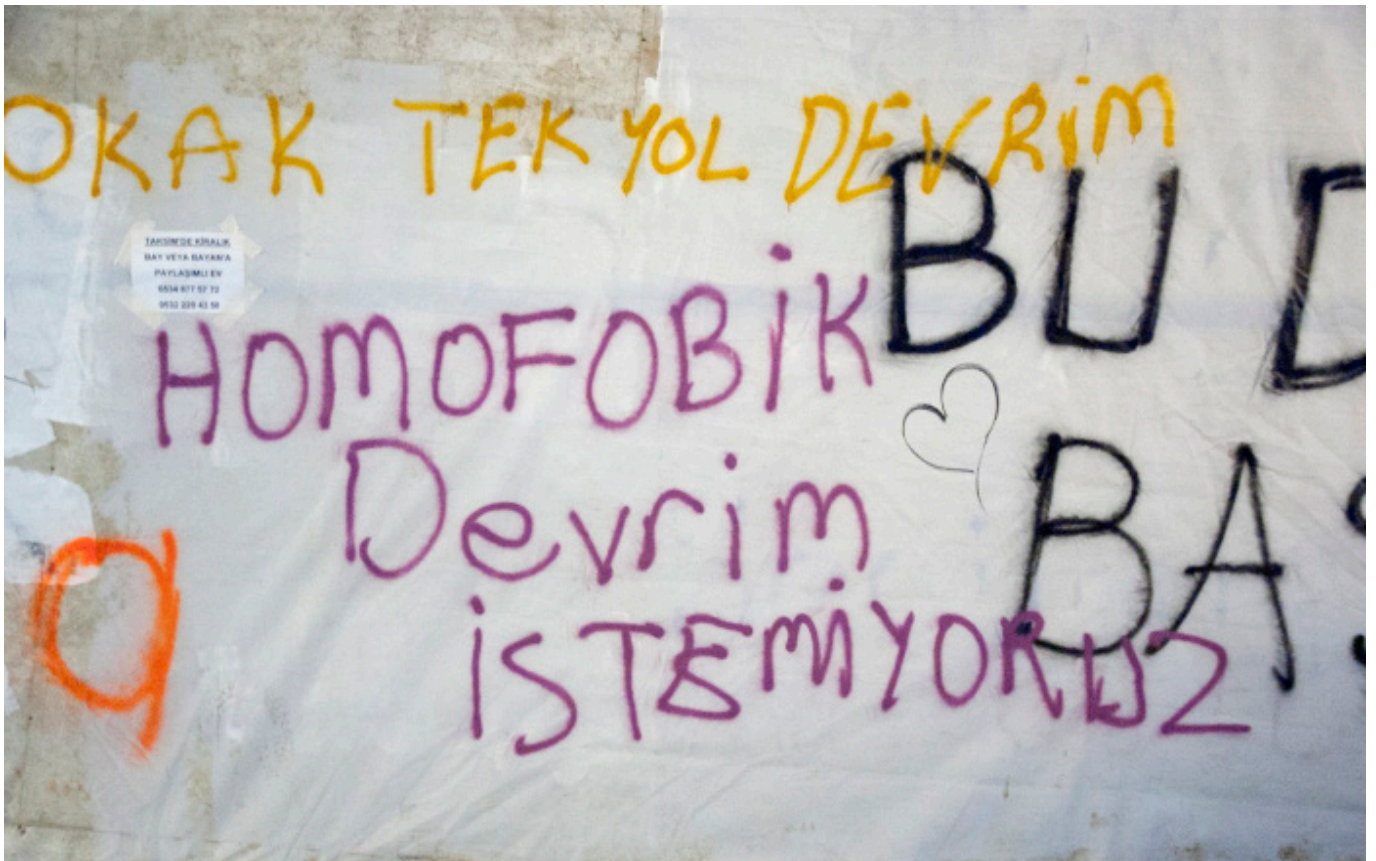 OKAK TEK YOL DEVRİM
TAKSİM'DE KİRALIK
BAY VEYA BAYAN'A
PAYLAŞIMLI EV
0534 677 57 72
0532 229 43 50
HOMOFOBİK
Devrim
İSTEMİYORUZ
BU D
BAŞ
a